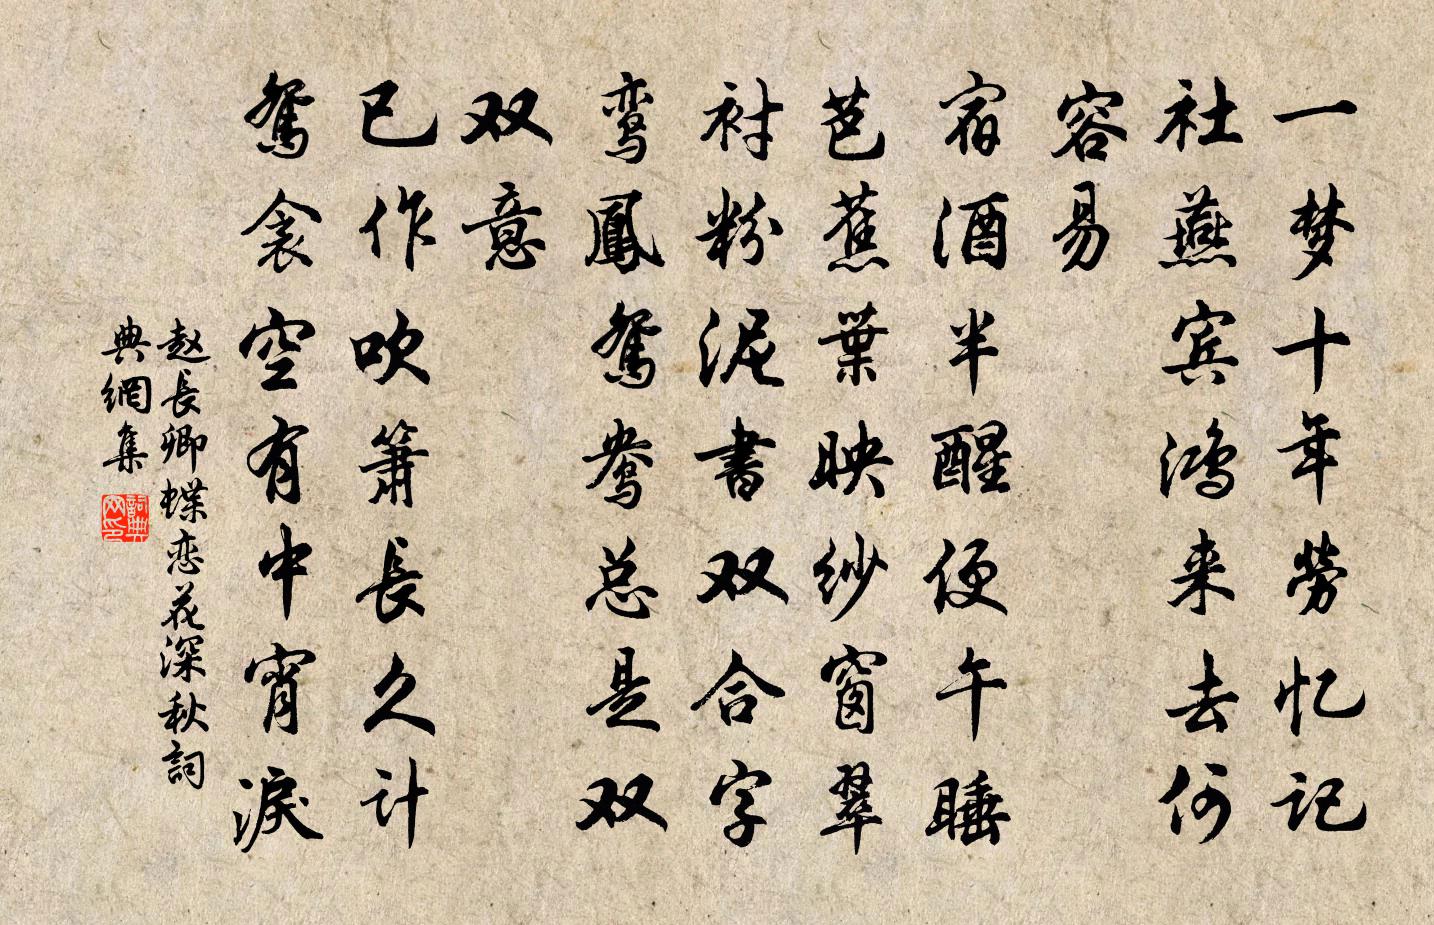 一梦十年劳忆记
社燕宾鸿来去何
容易
宿酒半醒便午睡
芭蕉葉映纱窗翠
衬粉泥書双合字
鸾鳳鴛鸯总是双
双意
已作吹箫長久计
鴛衾空有中宵淚
赵長卿蝶恋花深秋詞
典網集
詞典网印